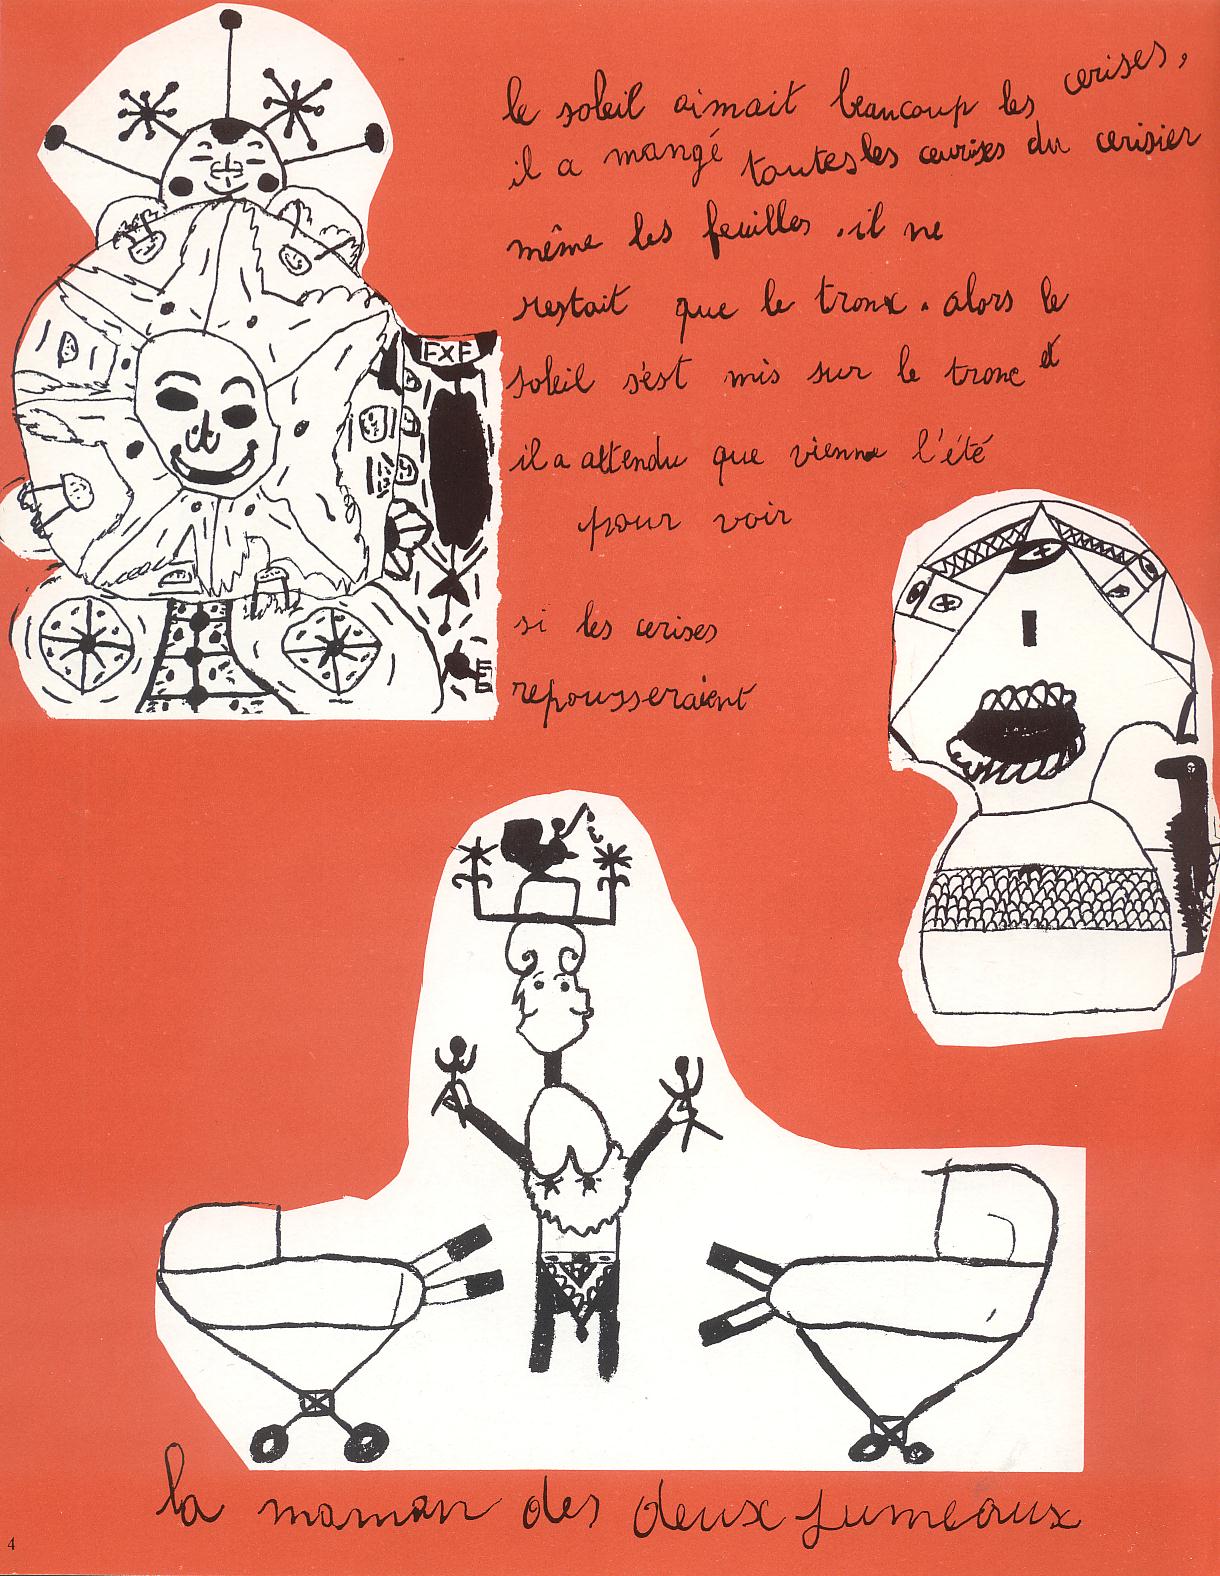 le soleil aimait beaucoup les cerises,
il a mangé toutes les ceurises du cerisier
même les feuilles . il ne
restait que le tronx . alors le
soleil s'est mis sur le tronc et
il a attendu que vienne l'été
pour voir
si les cerises
repousseraient
FXF
la maman des deux jumeaux
4